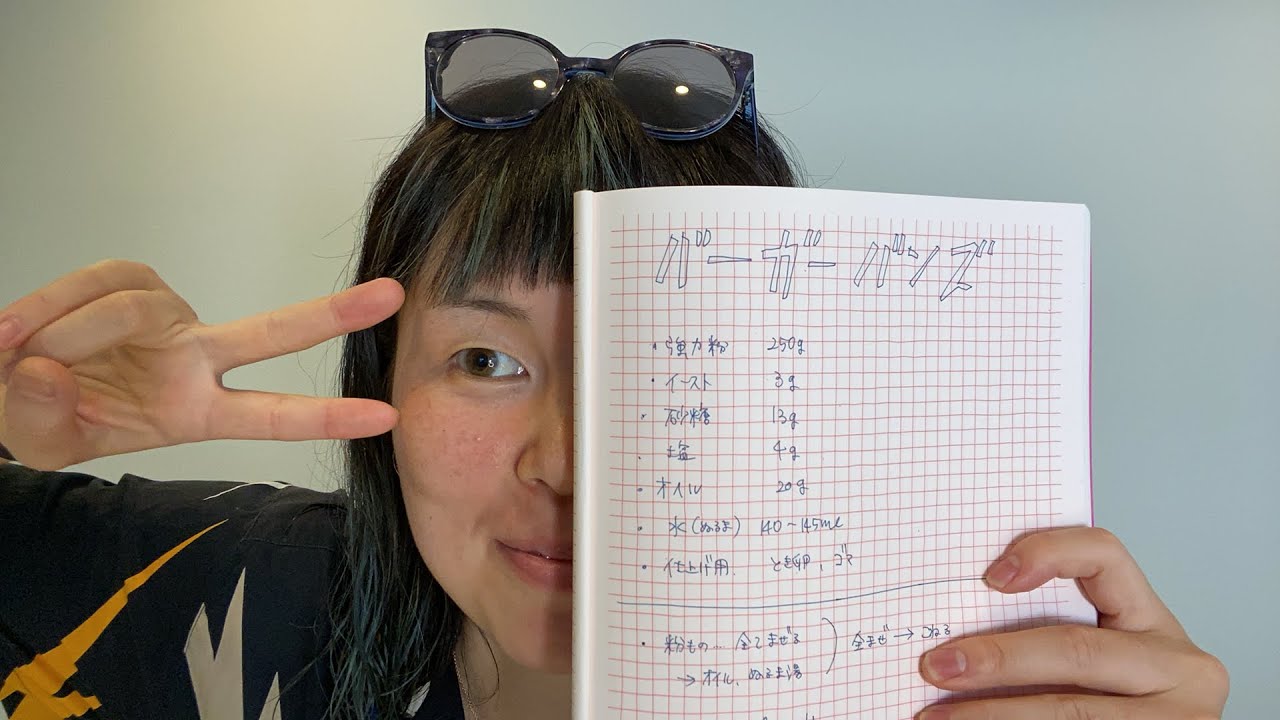 バーガーバンズ
・強力粉 250g
・イースト 3g
・砂糖 13g
・塩 4g
・オイル 20g
・水(ぬるま) 140〜145ml
・仕上げ用 とき卵、ゴマ
・粉もの… 全てまぜる
→オイル、ぬるま湯
全まぜ→こねる